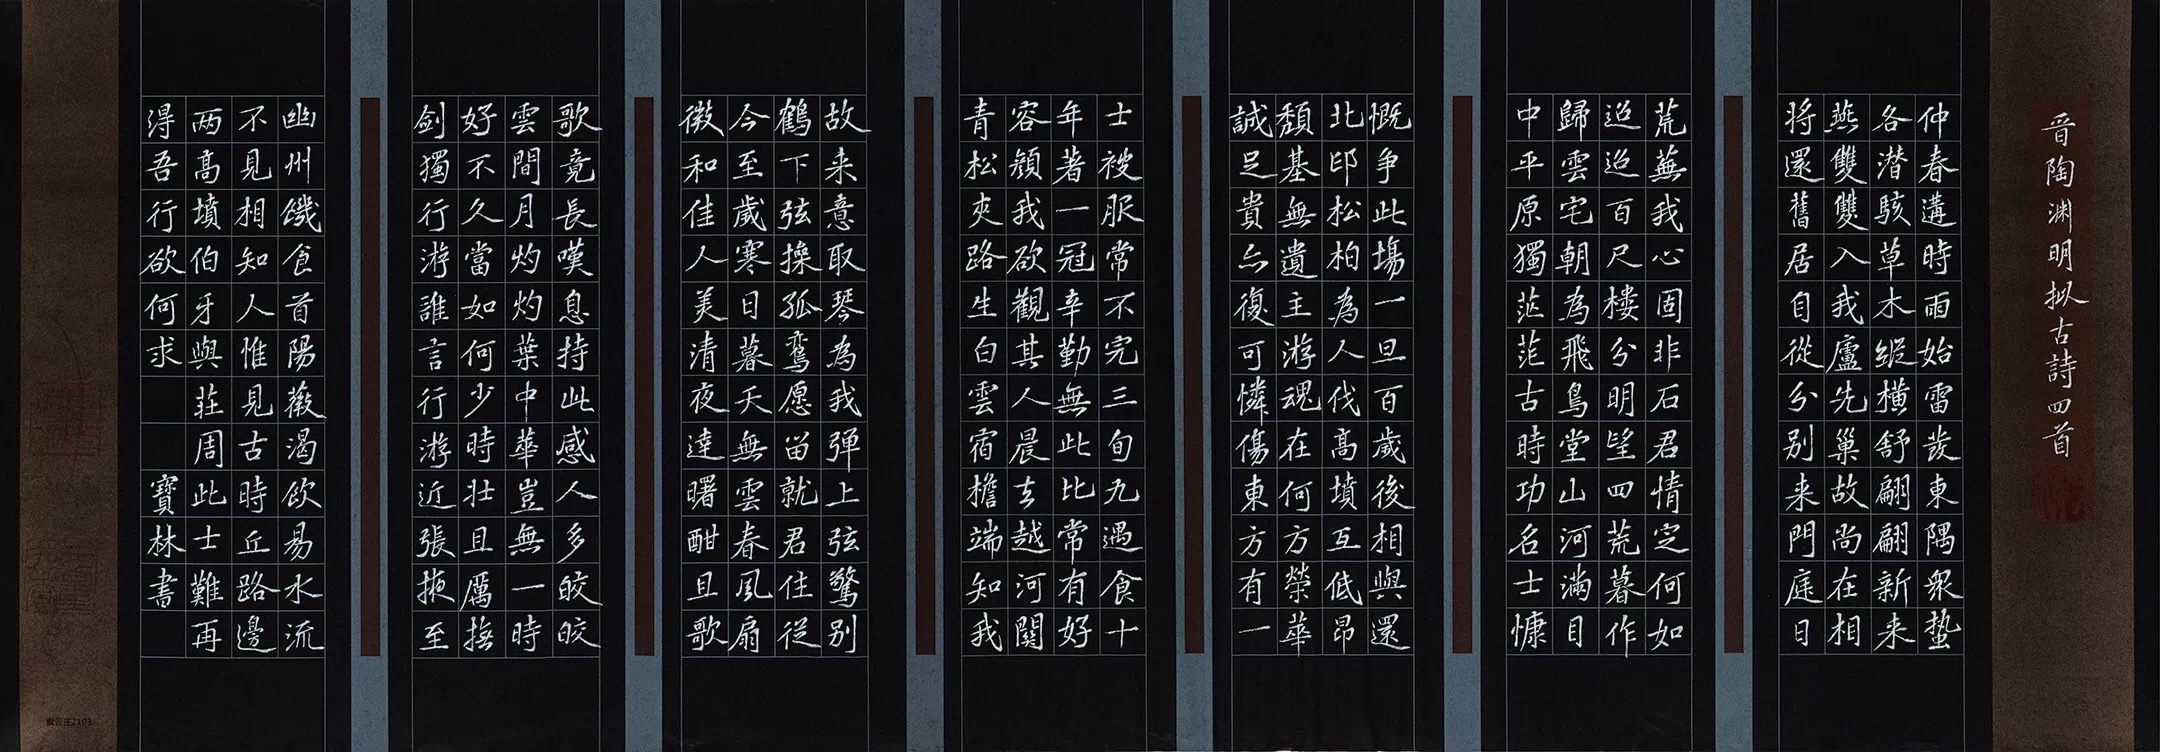 晋陶渊明拟古詩四首
仲春遘時雨始雷發東隅衆蟄
各潜駭草木縱横舒翩翩新来
燕雙雙入我廬先巢故尚在相
将還舊居自從分别来門庭日
荒蕪我心固非石君情定何如
迢迢百尺樓分明望四荒暮作
歸雲宅朝為飛鳥堂山河滿目
中平原獨茫茫古時功名士慷
慨争此場一旦百歲後相與還
北邙松柏為人伐高墳互低昂
頹基無遺主游魂在何方榮華
誠足貴亦復可憐傷東方有一
士被服常不完三旬九遇食十
年著一冠辛勤無此比常有好
容顏我欲觀其人晨去越河關
青松夾路生白雲宿檐端知我
故来意取琴為我弹上弦驚别
鶴下弦操孤鸞愿留就君住從
今至歲寒日暮天無雲春風扇
微和佳人美清夜達曙酣且歌
歌竟長嘆息持此感人多皎皎
雲間月灼灼葉中華豈無一時
好不久當如何少時壮且厲撫
剑獨行游誰言行游近張掖至
幽州饑食首陽薇渴飲易水流
不見相知人惟見古時丘路邊
两高墳伯牙與莊周此士難再
得吾行欲何求
寶林書